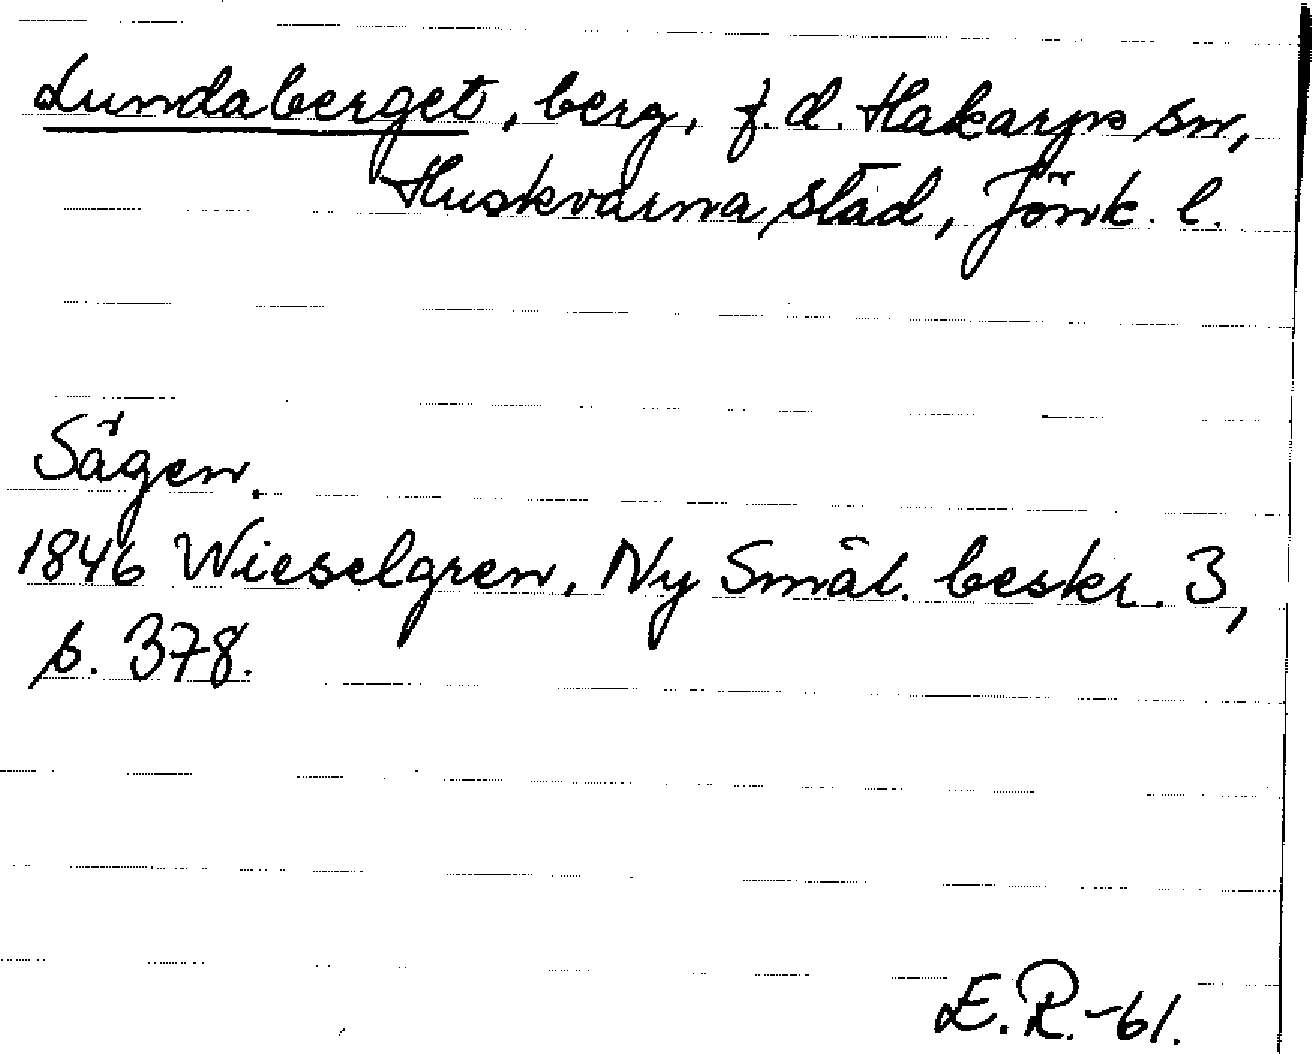 Lundaberget, berg, f.d. Hakarps sn,
Huskvarna stad, Jönk. l.
Sägen.
1846 Wieselgren, Ny Smål. beskr. 3,
s. 378.
E.R.-61.